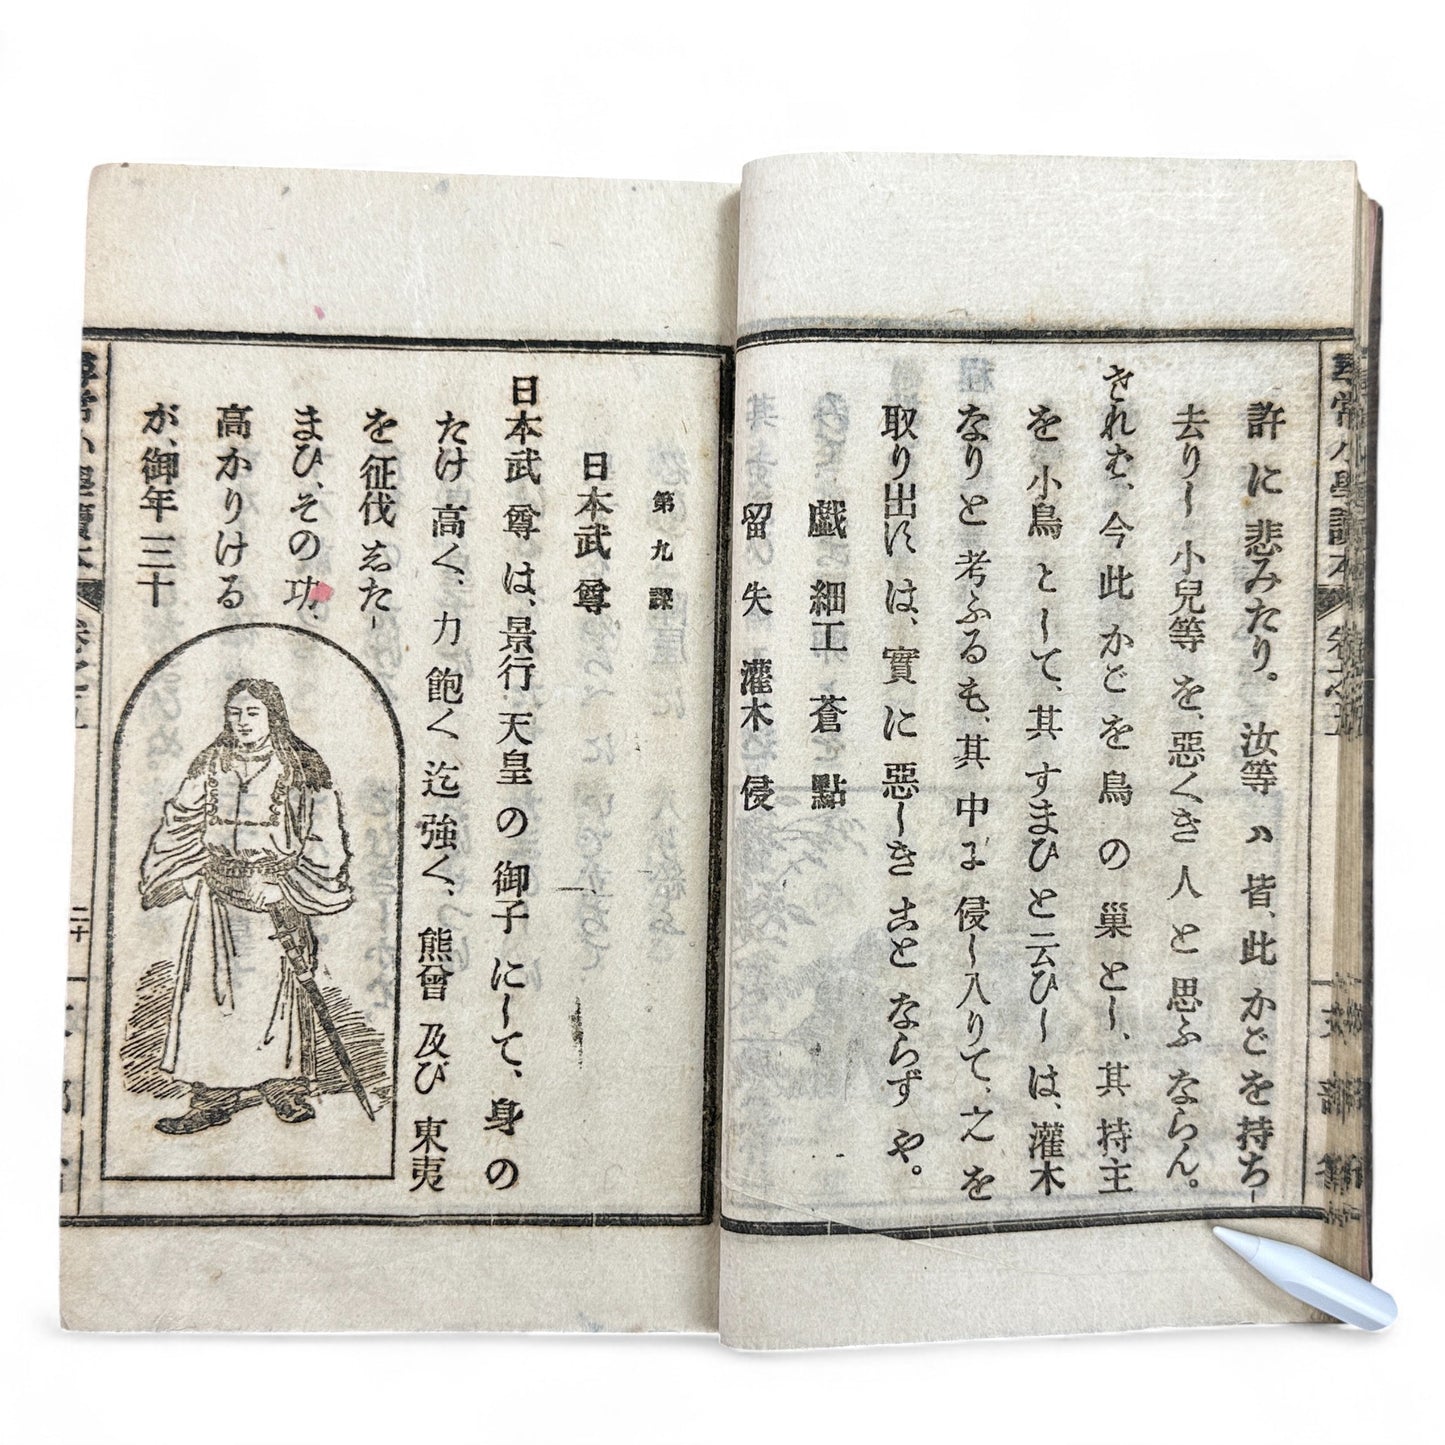 尋常小學讀本
卷之五
許に悲みたり。汝等ハ皆、此かごを持ち
去りし小兒等を、惡くき人と思ふならん。
されむ、今此かごを鳥の巢とし、其持主
を小鳥として、其すまひと云ひしは、灌木
なりと考ふるも、其中に侵し入りて、之を
取り出すは、實に惡しきことならずや。
戲 細工 蒼 點
留 失 灌木 侵
第九課
日本武尊
日本武尊は、景行天皇の御子にして、身の
たけ高く、力飽く迄強く、熊曾及び東夷
を征伐した
まひ、その功、
高かりける
が、御年三十
尋常小學讀本
二十